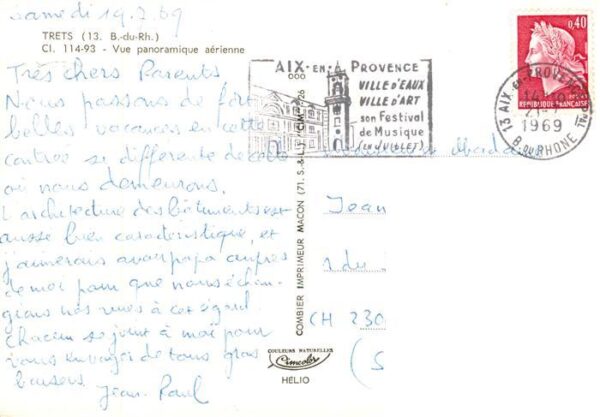 Samedi 19.7.69
TRETS (13. B.-du-Rh.)
Cl. 114-93 - Vue panoramique aérienne
Très chers Parents
Nous passons de fort
belles vacances en cette
contrée si différente de celle
où nous demeurons.
L'architecture des bâtiments est
aussi bien caractéristique, et
j'aimerais avoir papa auprès
de moi pour que nous échan-
gions nos vues à cet égard.
Chacun se joint à moi pour
vous envoyer de tous gros
baisers
Jean-Paul
AIX-EN-PROVENCE
VILLE D'EAUX
VILLE D'ART
son Festival
de Musique
(EN JUILLET)
0,40
REPUBLIQUE FRANÇAISE
13 AIX-EN-PROVENCE
21-7
1969
B. DU RHONE
COMBIER IMPRIMEUR MACON (71. S.-&-L.) "CIM"
Monsieur et Madame
Jean
1 du
CH 230
(S
COULEURS NATURELLES
Cimcolor
HÉLIO